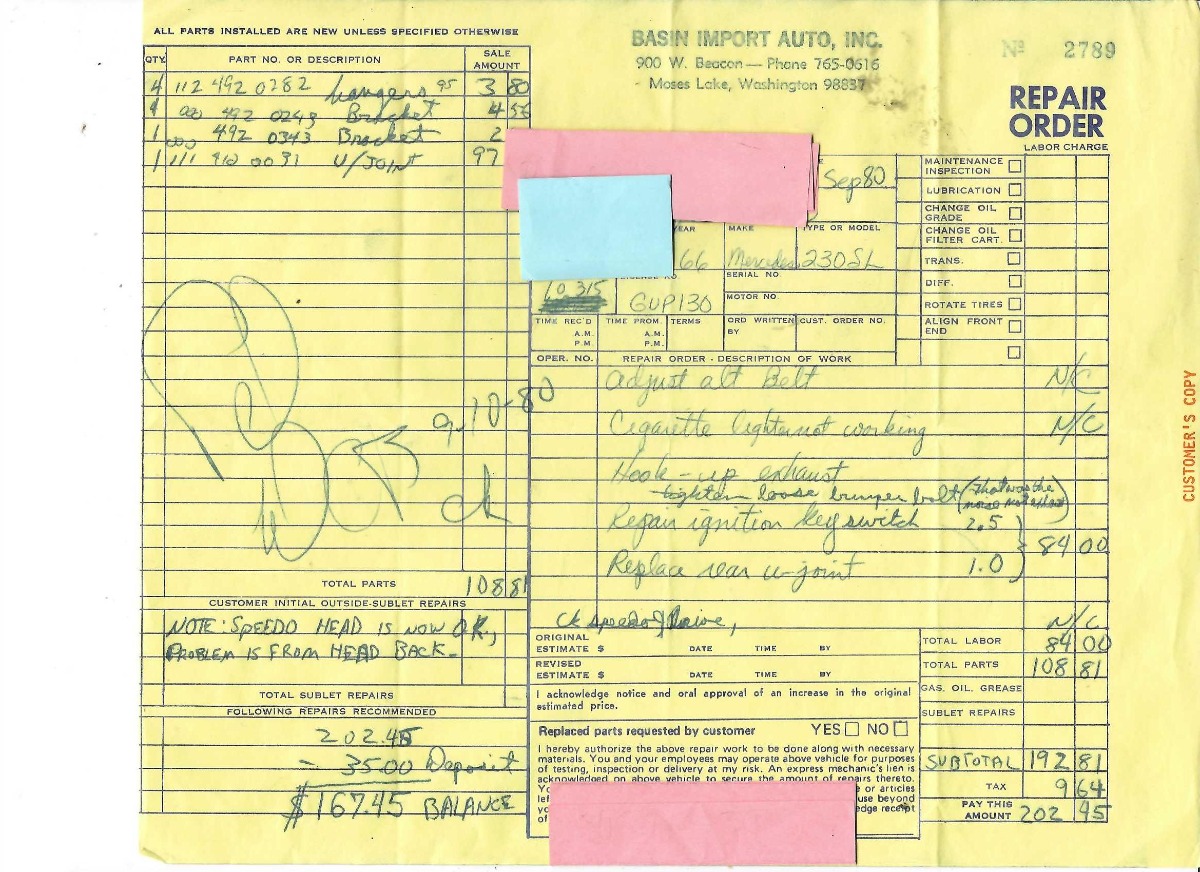 ALL PARTS INSTALLED ARE NEW UNLESS SPECIFIED OTHERWISE
QTY. PART NO. OR DESCRIPTION SALE AMOUNT
4 112 492 0282 hangers 95 3 80
492 0243 Bracket 4 56
1 000 492 0343 Bracket 2
1 111 410 0031 U/JOINT 97
9-10-80
ck
TOTAL PARTS 108 81
CUSTOMER INITIAL OUTSIDE-SUBLET REPAIRS
NOTE: SPEEDO HEAD IS NOW O.K.,
PROBLEM IS FROM HEAD BACK.
TOTAL SUBLET REPAIRS
FOLLOWING REPAIRS RECOMMENDED
202.45
- 35.00 Deposit
$167.45 BALANCE
BASIN IMPORT AUTO, INC.
900 W. Beacon — Phone 765-0616
Moses Lake, Washington 98837
Nº 2789
REPAIR ORDER
LABOR CHARGE
Sep 80
YEAR MAKE TYPE OR MODEL
66 Mercedes 230SL
SERIAL NO.
10,315 GUP130
MOTOR NO.
TIME REC'D TIME PROM. TERMS ORD WRITTEN BY CUST. ORDER NO.
A.M. A.M.
P.M. P.M.
MAINTENANCE INSPECTION
LUBRICATION
CHANGE OIL GRADE
CHANGE OIL FILTER CART.
TRANS.
DIFF.
ROTATE TIRES
ALIGN FRONT END
OPER. NO. REPAIR ORDER - DESCRIPTION OF WORK
Adjust alt Belt N/C
Cigarette lighter not working N/C
Hook-up exhaust
tighten loose bumper bolt (that was the
noise
Repair ignition key switch 2.5
84 00
Replace rear u-joint 1.0
ck speedo Drive, N/C
ORIGINAL ESTIMATE $ DATE TIME BY
REVISED ESTIMATE $ DATE TIME BY
I acknowledge notice and oral approval of an increase in the original
estimated price.
Replaced parts requested by customer YES NO
I hereby authorize the above repair work to be done along with necessary
materials. You and your employees may operate above vehicle for purposes
of testing, inspection or delivery at my risk. An express mechanic's lien is
acknowledged on above vehicle to secure the amount of repairs thereto.
or articles
use beyond
receipt
of
TOTAL LABOR 84 00
TOTAL PARTS 108 81
GAS. OIL. GREASE
SUBLET REPAIRS
SUBTOTAL 192 81
TAX 9 64
PAY THIS AMOUNT 202 45
CUSTOMER'S COPY